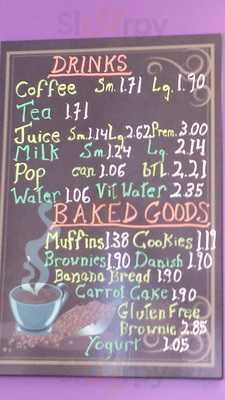 DRINKS
Coffee Sm. 1.71 Lg. 1.90
Tea 1.71
Juice Sm 1.14 Lg. 2.62 Prem. 3.00
Milk Sm 1.24 Lg. 2.14
Pop can 1.06 btl 2.21
Water 1.06 Vit Water 2.35
BAKED GOODS
Muffins 1.38 Cookies 1.19
Brownies 1.90 Danish 1.90
Banana Bread 1.90
Carrot Cake 1.90
Gluten Free
Brownie 2.85
Yogurt 1.05